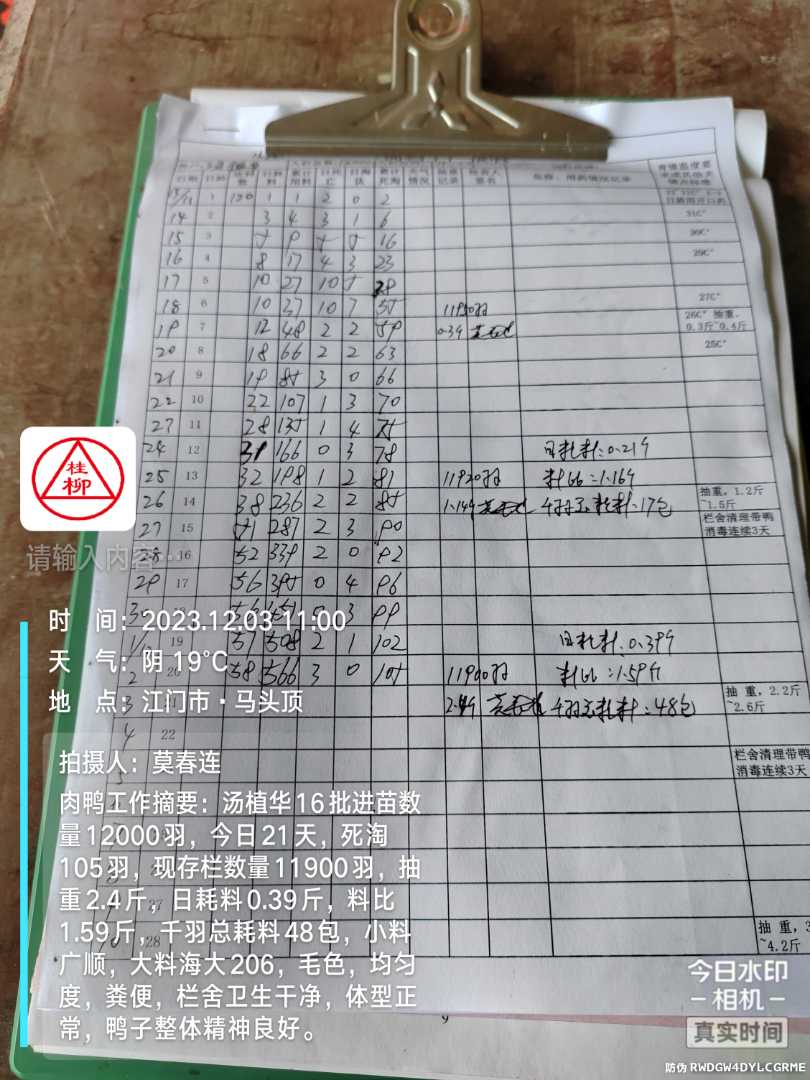 日期 日龄 日死亡 日淘汰 累计死淘 天气情况
育雏温度要
13/11 1 120 1 1 2 0 2
14 2 3 4 3 1 6 31C°
15 3 5 9 5 5 16
16 4 8 17 4 3 23
17 5 10 27 10 5 38
18 6 10 37 10 7 55 11950羽 27C°
19 7 12 48 2 2 59 0.39 26C° 抽重,
0.3斤~0.4斤
20 8 18 66 2 2 63 25C°
21 9 19 85 3 0 66
22 10 22 107 1 3 70
23 11 28 135 1 4 75
24 12 31 166 0 3 78 日耗料:0.21斤
25 13 32 198 1 2 81 11920羽 料比:1.16斤
抽重,1.2斤
~1.5斤
26 14 38 236 2 2 85 1.14斤 千羽总耗料:17包
栏舍清理带鸭
消毒连续3天
27 15 51 287 2 3 90
28 16 52 339 2 0 92
29 17 56 395 0 4 96
30 3 99
1/12 19 57 508 2 1 102 日耗料:0.39斤
2 20 58 566 3 0 105 11900羽 料比:1.59斤
3 21 2.4斤 千羽总耗料:48包
抽重,2.2斤
~2.6斤
4 22
栏舍清理带鸭
消毒连续3天
27
28
抽重,3
~4.2斤
桂
柳
请输入内容...
时 间:2023.12.03 11:00
天 气:阴 19℃
地 点:江门市·马头顶
拍摄人:莫春连
肉鸭工作摘要:汤植华16批进苗数
量12000羽,今日21天,死淘
105羽,现存栏数量11900羽,抽
重2.4斤,日耗料0.39斤,料比
1.59斤,千羽总耗料48包,小料
广顺,大料海大206,毛色,均匀
度,粪便,栏舍卫生干净,体型正
常,鸭子整体精神良好。
今日水印
-相机-
真实时间
防伪 RWDGW4DYLCGRME